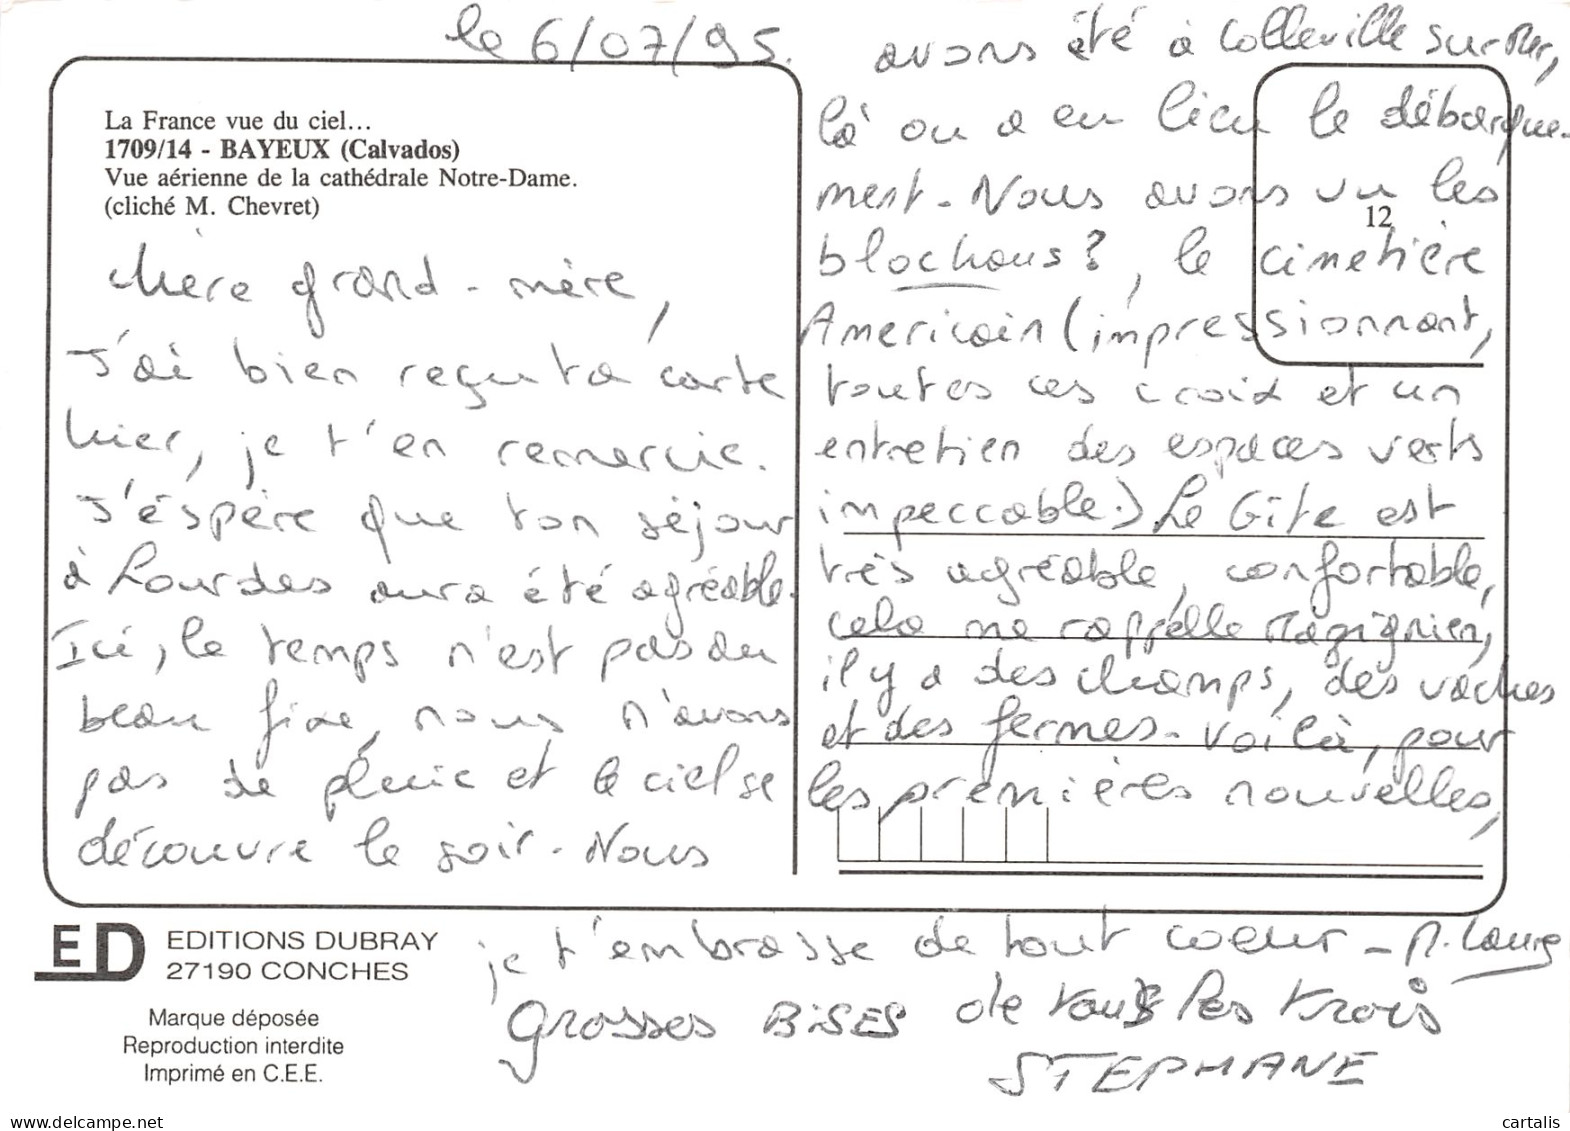 le 6/07/95.
La France vue du ciel...
1709/14 - BAYEUX (Calvados)
Vue aérienne de la cathédrale Notre-Dame.
(cliché M. Chevret)
Chère grand-mère,
J'ai bien reçu ta carte
hier, je t'en remercie.
J'éspère que ton séjour
à Lourdes aura été agréable.
Ici, le temps n'est pas au
beau fixe, nous n'avons
pas de pluie et le ciel se
découvre le soir. Nous
avons été à Colleville sur Mer,
là ou a eu lieu le débarque-
ment. Nous avons vu les
12
blockhaus?, le cimetière
Americain (impressionnant,
toutes ces croix et un
entretien des espaces verts
impeccable.) Le Gîte est
très agréable, confortable,
cela me rappelle
il y a des champs, des vaches
et des fermes. Voilà, pour
les premières nouvelles,
je t'embrasse de tout coeur - M. Laure
Grosses BiSES de tous les trois
STEPHANE
ED
EDITIONS DUBRAY
27190 CONCHES
Marque déposée
Reproduction interdite
Imprimé en C.E.E.
delcampe.net
cartalis